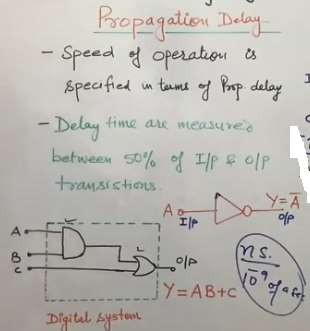 Propagation Delay
- Speed of operation is
specified in terms of Prop. delay
- Delay time are measured
between 50% of I/P & O/P
transistions.
A
I/P
Y=A̅
O/P
A
B
C
O/P
Y=AB+C
Digital system
ns.
10⁻⁹ of a sec